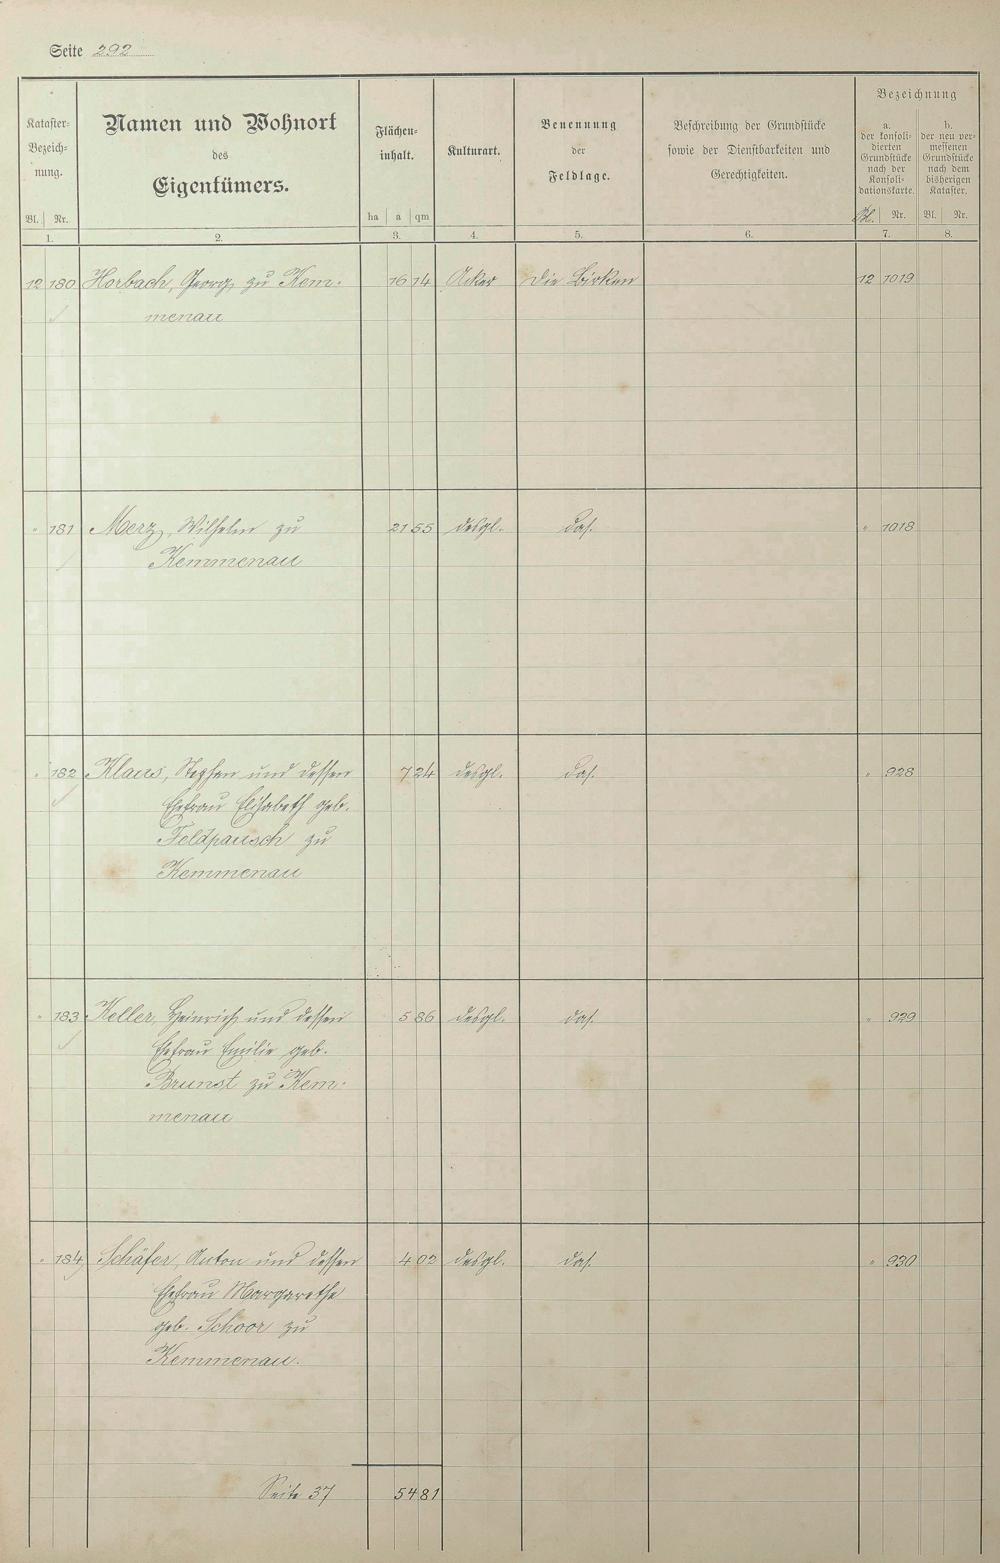 Seite 292
Kataster-
Bezeich-
nung.
Bl. Nr.
1.
Namen und Wohnort
des
Eigentümers.
2.
Flächen-
inhalt.
ha a qm
3.
Kulturart.
4.
Benennung
der
Feldlage.
5.
Beschreibung der Grundstücke
sowie der Dienstbarkeiten und
Gerechtigkeiten.
6.
Bezeichnung
a.
der konsoli-
dierten
Grundstücke
nach der
Konsoli-
dationskarte.
Bl. Nr.
7.
b.
der neu ver-
messenen
Grundstücke
nach dem
bisherigen
Kataster.
Bl. Nr.
8.
12 180 Horbach, Georg, zu Kem- 16 14 Acker Die Birken 12 1019
menau
" 181 Merz, Wilhelm zu 21 55 desgl. das. " 1018
Kemmenau
" 182 Klaus, Stephan und dessen 7 24 desgl. das. " 928
Ehefrau Elisabeth geb.
Feldpausch zu
Kemmenau
" 183 Keller, Heinrich und dessen 5 86 desgl. das. " 929
Ehefrau Emilie geb.
Brunst zu Kem-
menau
" 184 Schäfer, Anton und dessen 4 02 desgl. das. " 930
Ehefrau Margarethe
geb. Schoor zu
Kemmenau.
Seite 37 54 81